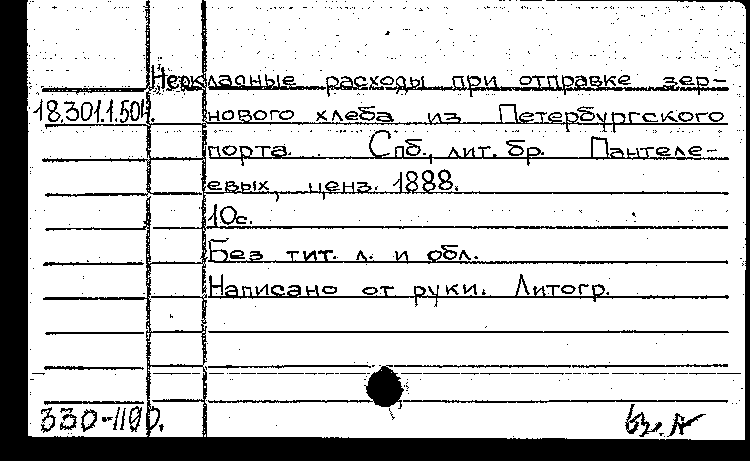 Неркладные расходы при отправке зер-
18.301.1.504. нового хлеба из Петербургского
порта. Спб., лит. бр. Пантеле-
евых, ценз. 1888.
10с.
Без тит. л. и обл.
Написано от руки. Литогр.
330-1190.